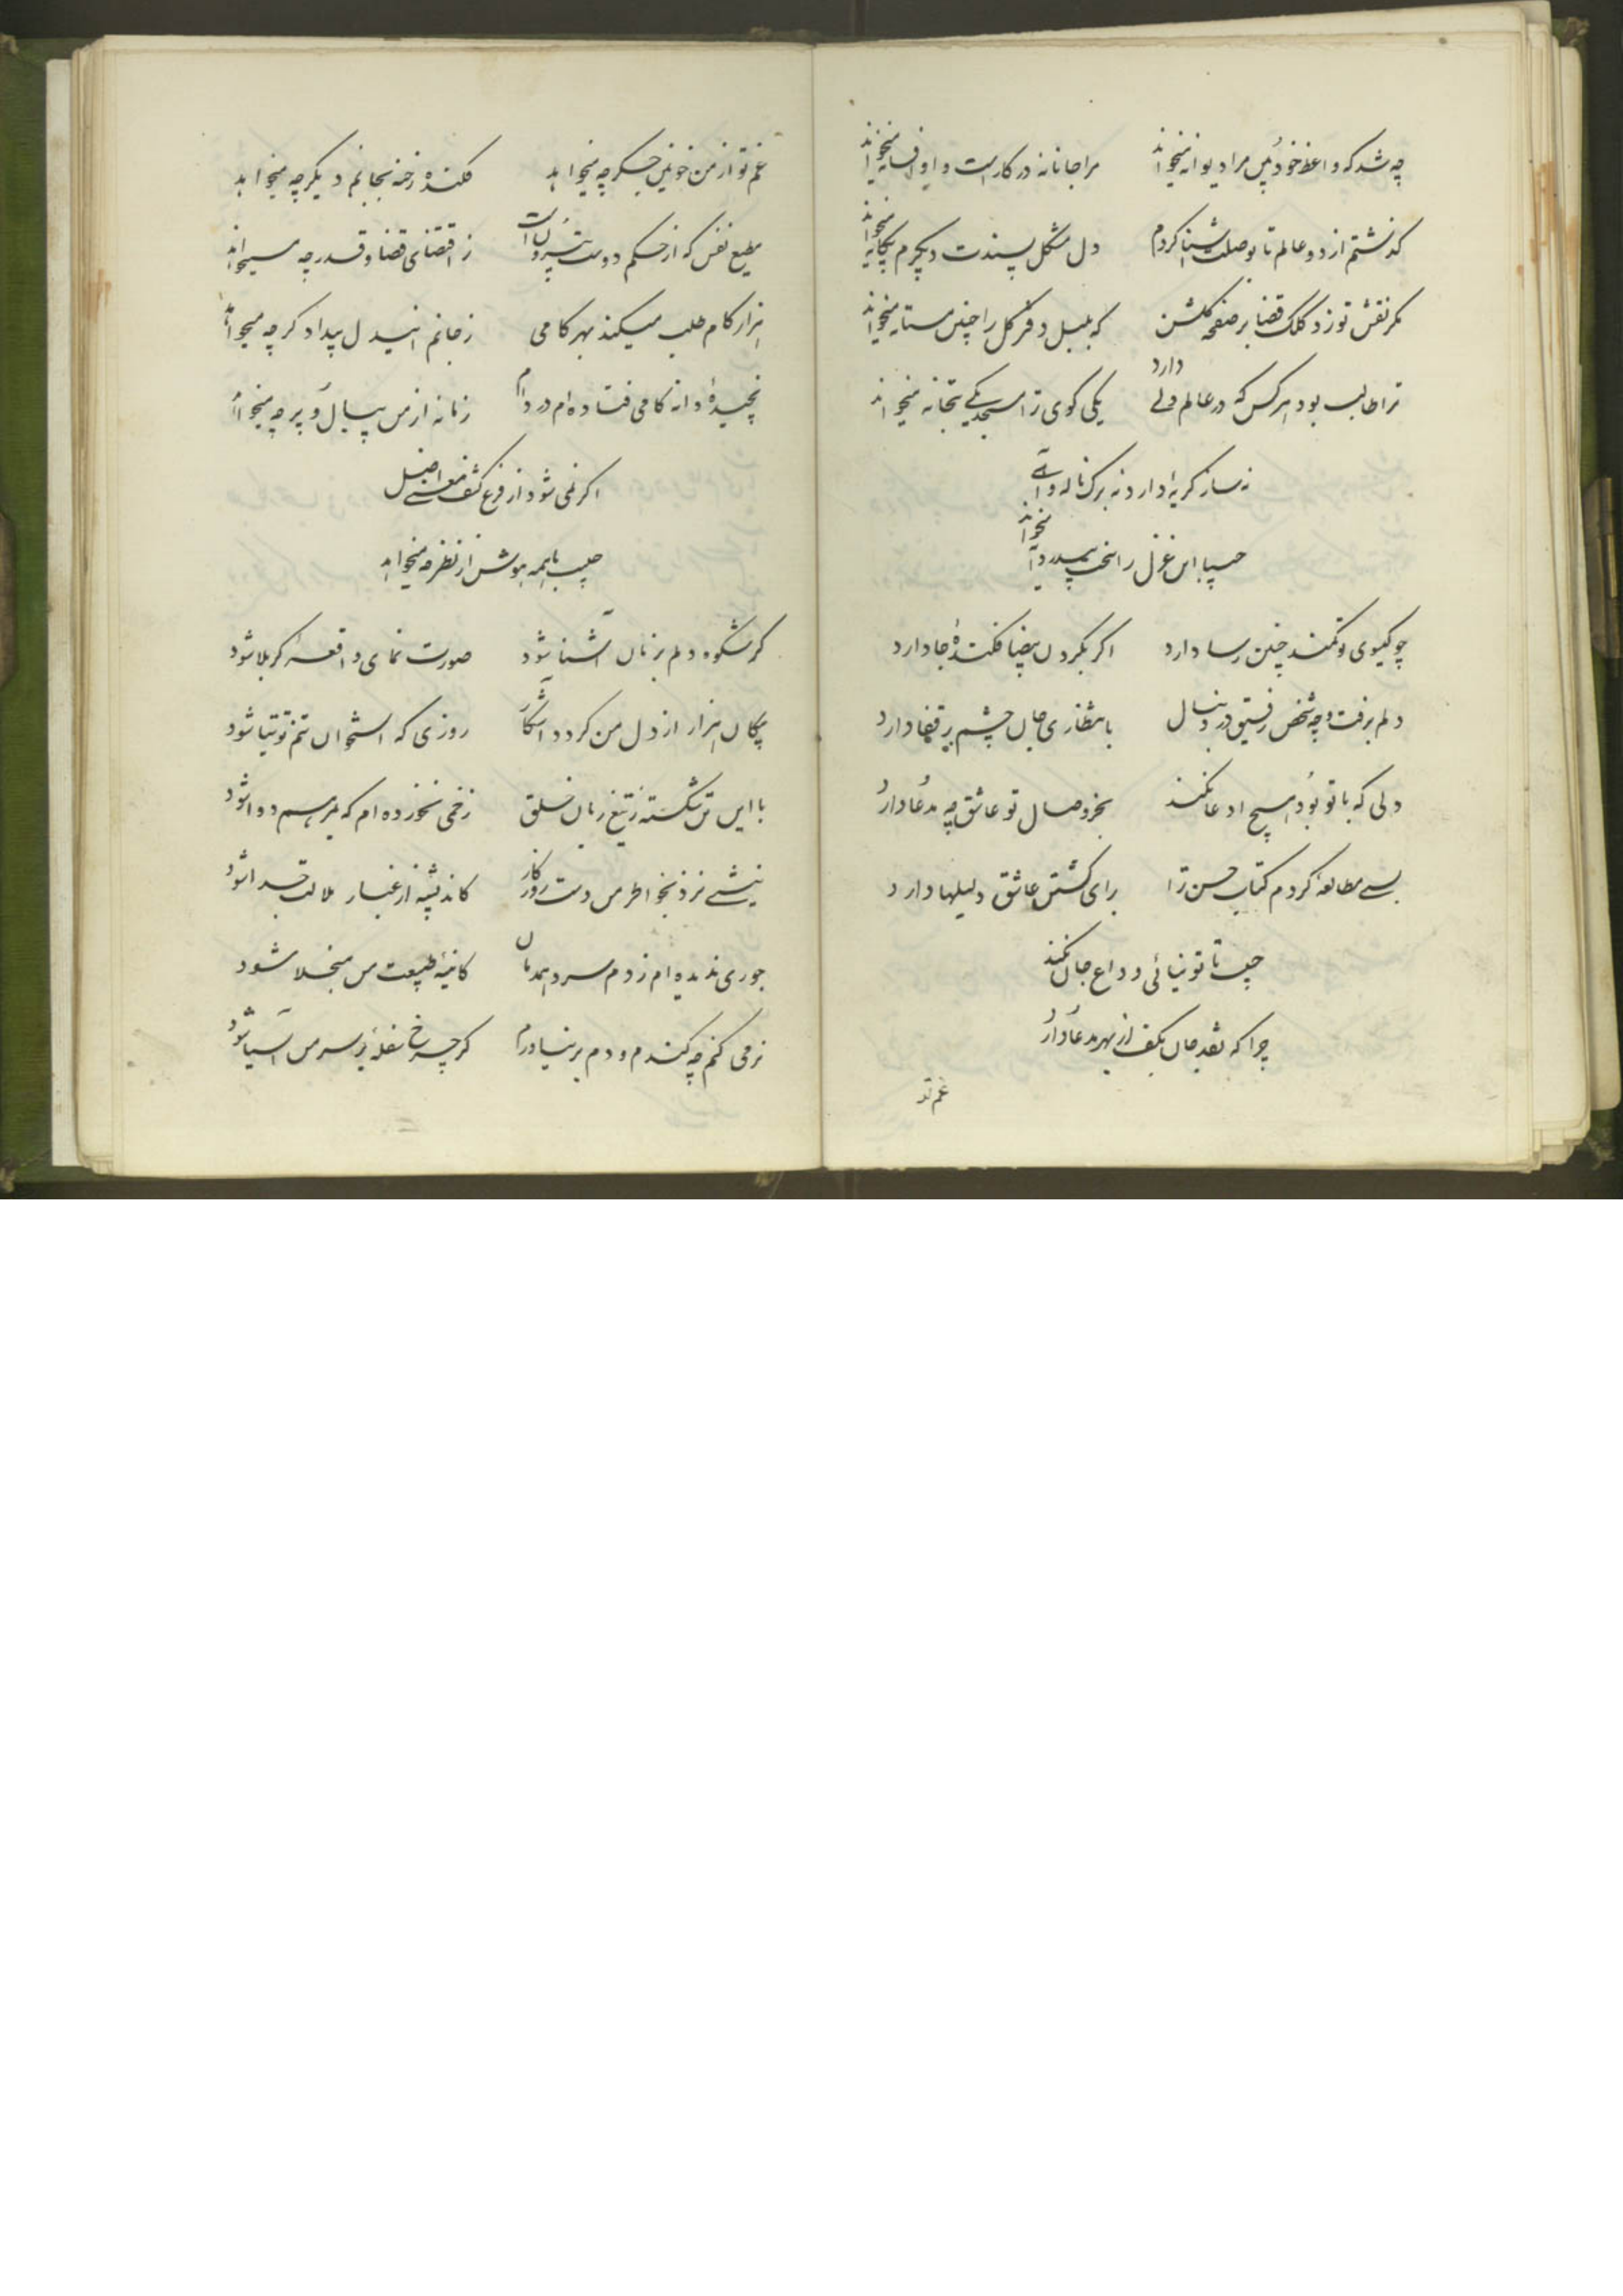 چه شد که واعظ خودبین مرا دیوانه میخواند مرا جانانه در کار است و او افسانه میخواند
گذشتم از دو عالم تا بوصلت آشنا کردم دل مشکل پسندت دیگرم بیگانه میخواند
مگر نقش تو زد کلک قضا بر صفحه گلشن که بلبل دفتر گل را چنین مستانه میخواند
ترا طالب بود هر کس که در عالم دلی دارد یکی کوی ترا مسجد یکی بتخانه میخواند
نه ساز گریه دارد نه برگ ناله و آهی
حبیبا این غزل را
چو گیسوی تو کمند چنین رسا دارد اگر بگردن بیضا فکنده جا دارد
دلم برفت و چه شخص رفیق در دنبال بانتظاری جان چشم بر قفا دارد
دلی که با تو بود هیچ ادعا نکند بجز وصال تو عاشق چه مدعا دارد
بسی مطالعه کردم کتاب حسن ترا برای کشتن عاشق دلیلها دارد
حبیب تا تو نیائی وداع جان نکند
چرا که نقد جان بکف از بهر مدعا دارد
غم تو
غم تو از من خونین جگر چه میخواهد فکنده رخنه بجانم دیگر چه میخواهد
مطیع نفس که از حکم دوست ز اقتضای قضا و قدر چه میخواهد
هزار کام طلب میکند بهر کامی ز جانم این دل بیدادگر چه میخواهد
نچیده دانه کامی فتاده‌ام در دام زمانه از من بی بال و پر چه میخواهد
اگر نمی شود از فرع کشف معنی اصل
حبیب با همه هوش از نظر چه میخواهد
گر شکوه دلم بزبان آشنا شود صورت نمای واقعه کربلا شود
پیکان هزار از دل من گردد آشکار روزی که استخوان تنم توتیا شود
با این تن شکسته ز تیغ زبان خلق زخمی نخورده‌ام که بمرهم دوا شود
نیشی نزد بخواطر من دست روزگار کاندیشه از غبار ملالت جدا شود
جوری ندیده‌ام ز دم سرد همدمان کائینه طبیعت من منجلا شود
نرمی کنم چه گندم و دم بر نیاورم گر چرخ سفله بر سر من آسیا شود